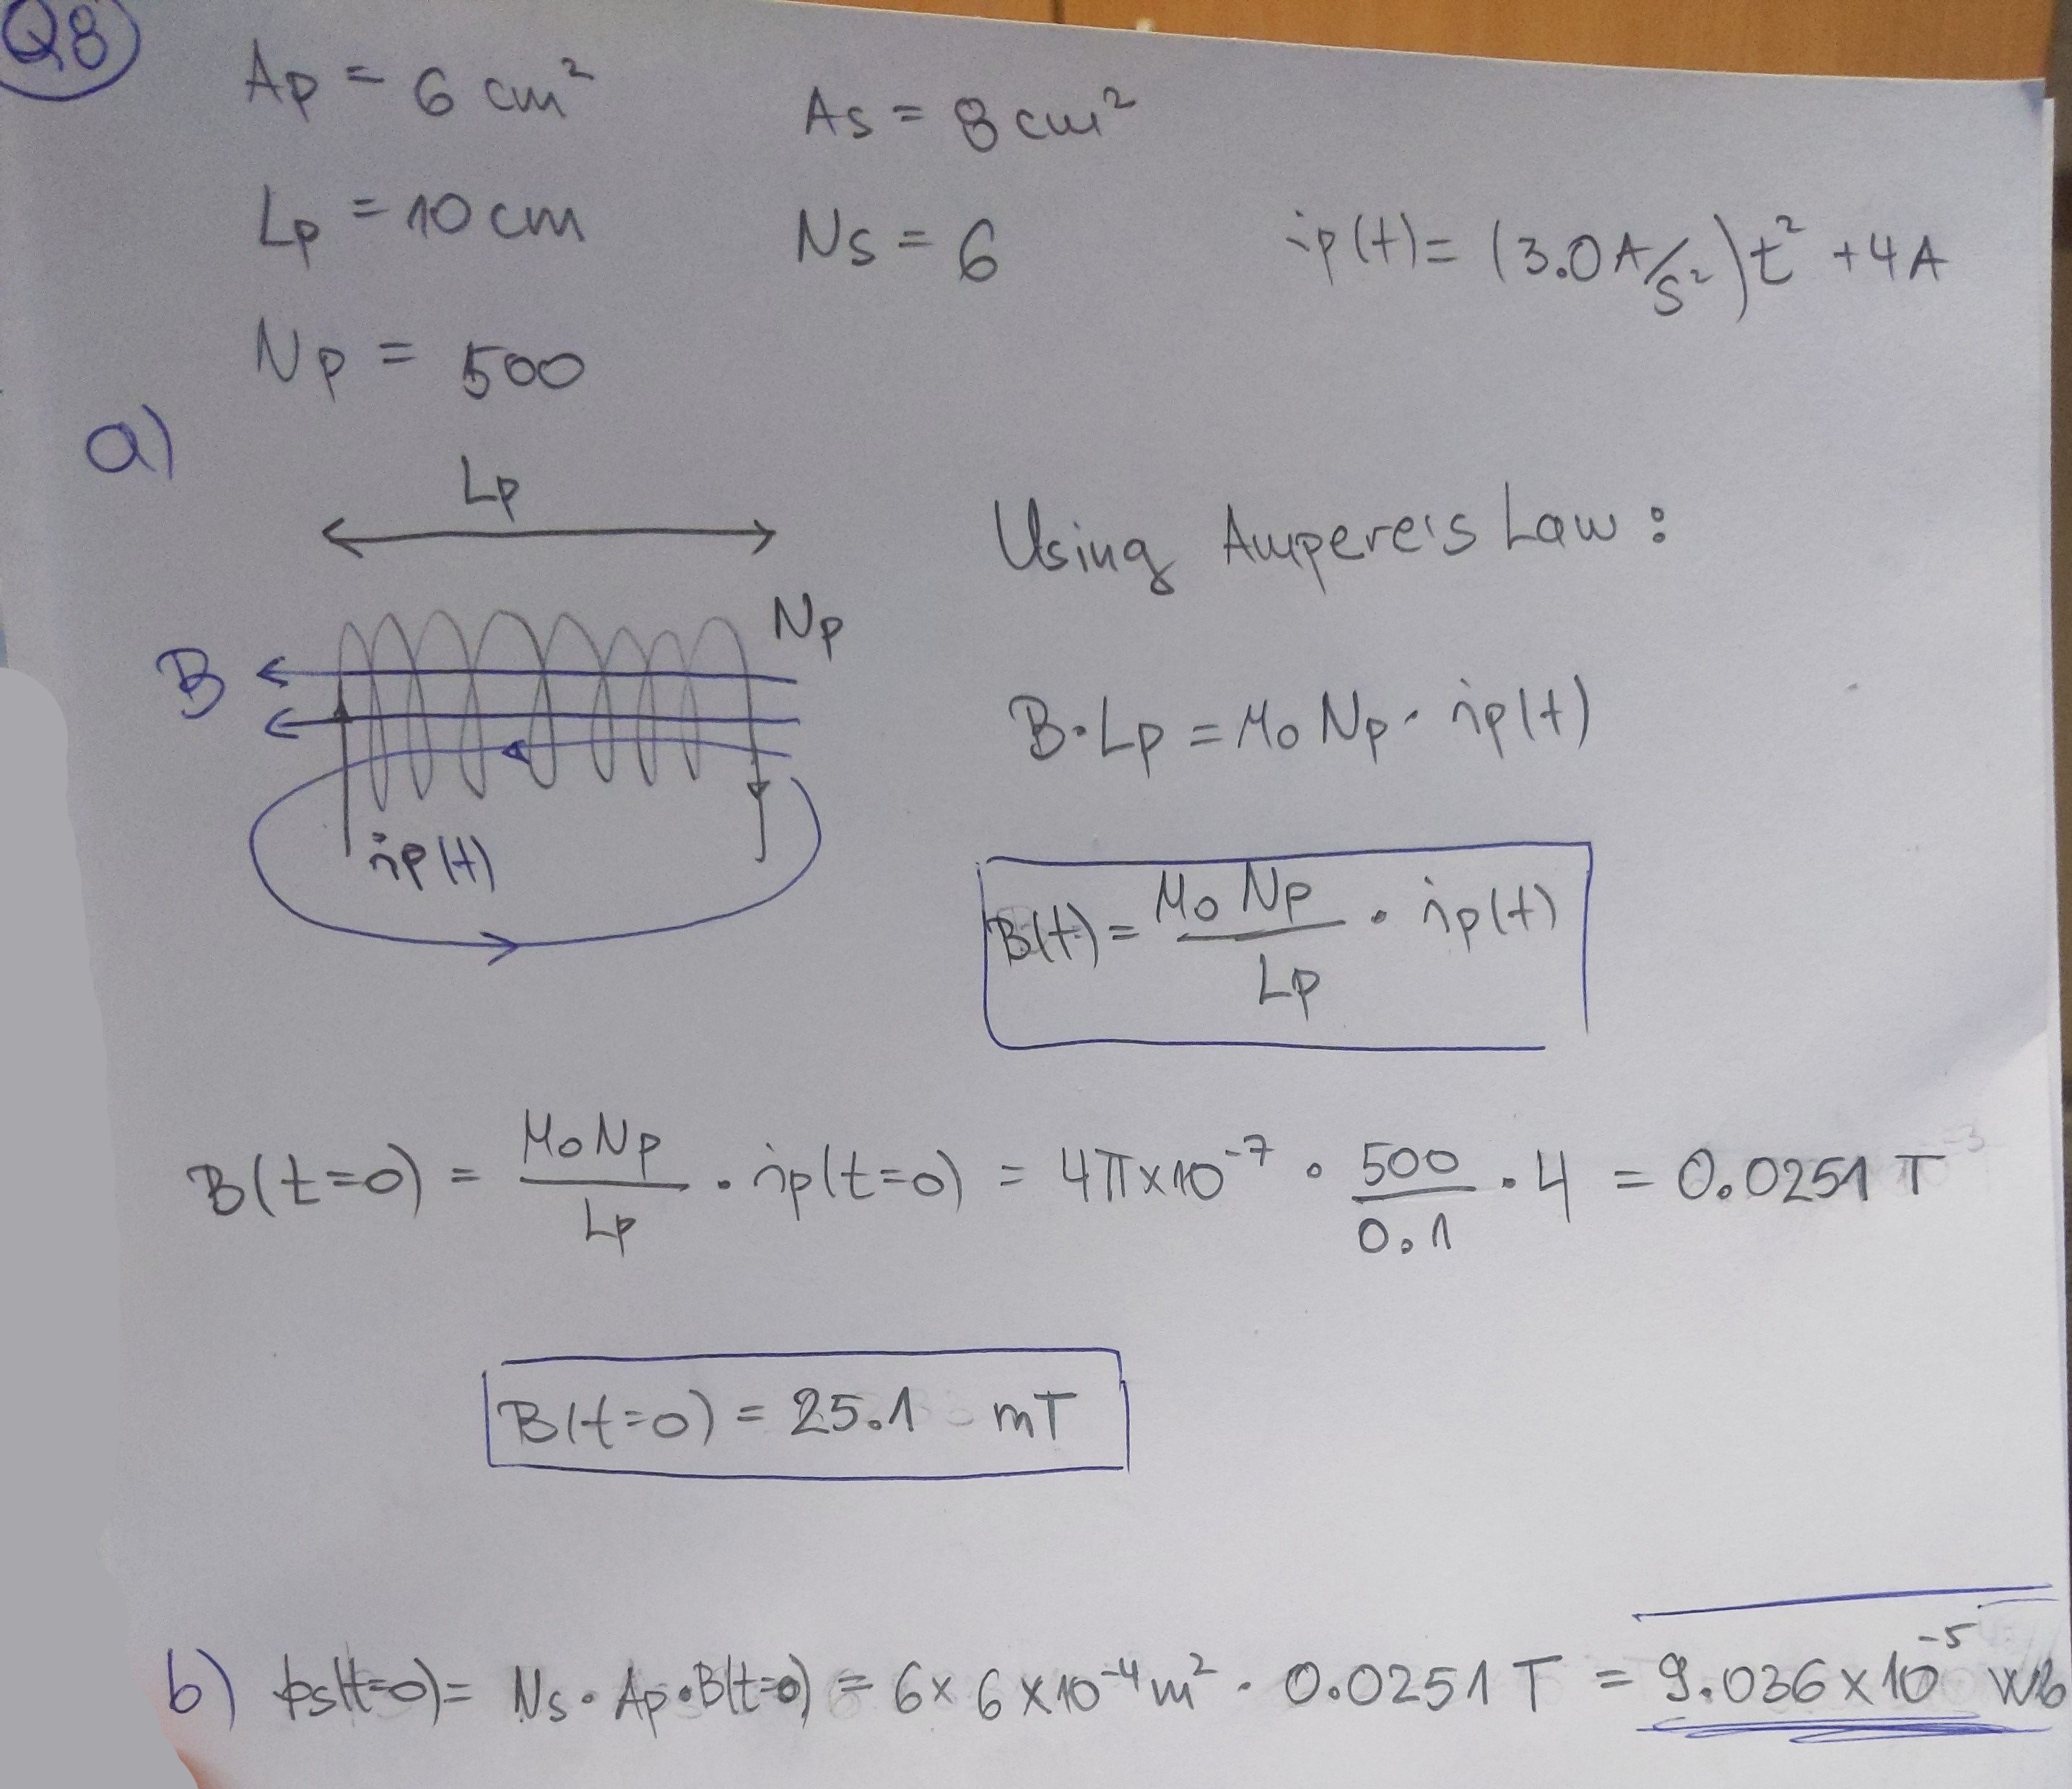 Q8
Ap = 6 cm² As = 8 cm²
Lp = 10 cm Ns = 6 ip(t) = (3.0 A/s²) t² + 4 A
Np = 500
a)
Lp
Using Ampere's Law:
Np
B
B·Lp = μ₀ Np · ip(t)
ip(t)
B(t) = μ₀ Np / Lp · ip(t)
B(t=0) = μ₀ Np / Lp · ip(t=0) = 4π×10⁻⁷ · 500/0.1 · 4 = 0.0251 T
B(t=0) = 25.1 mT
b) ϕs(t=0) = Ns · Ap · B(t=0) = 6 × 6 × 10⁻⁴ m² · 0.0251 T = 9.036 × 10⁻⁵ Wb